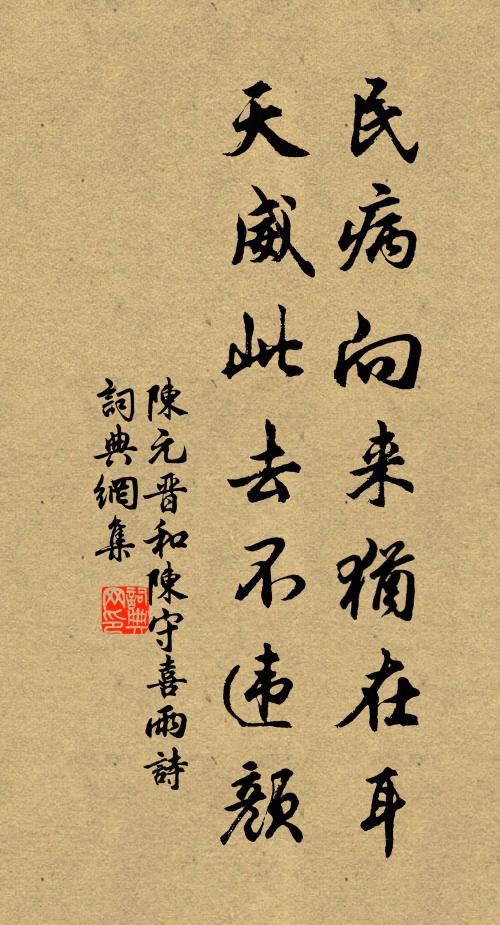 民病向来猶在耳
天威此去不违顔
陳元晋和陳守喜雨詩
詞典網集
詞典网印